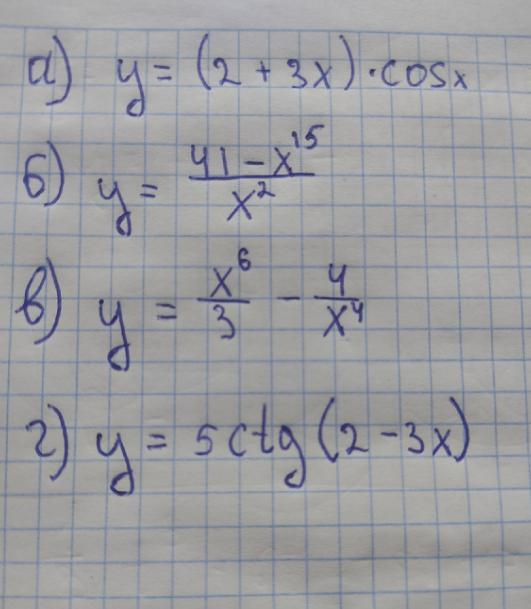 а) y = (2 + 3x) · cosx
б) y = (41 - x^15) / x^2
в) y = x^6 / 3 - 4 / x^4
г) y = 5ctg(2 - 3x)